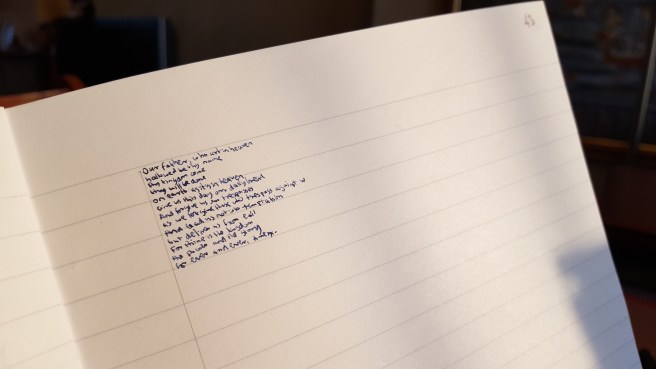 43
Our father, who art in heaven
hallowed be thy name
thy kingdom come
thy will be done
on earth as it is in heaven
Give us this day our daily bread
And forgive us our trespasses
as we forgive those who trespass against us
And lead us not into temptation
but deliver us from evil
For thine is the kingdom
the power and the glory
for ever and ever, amen.